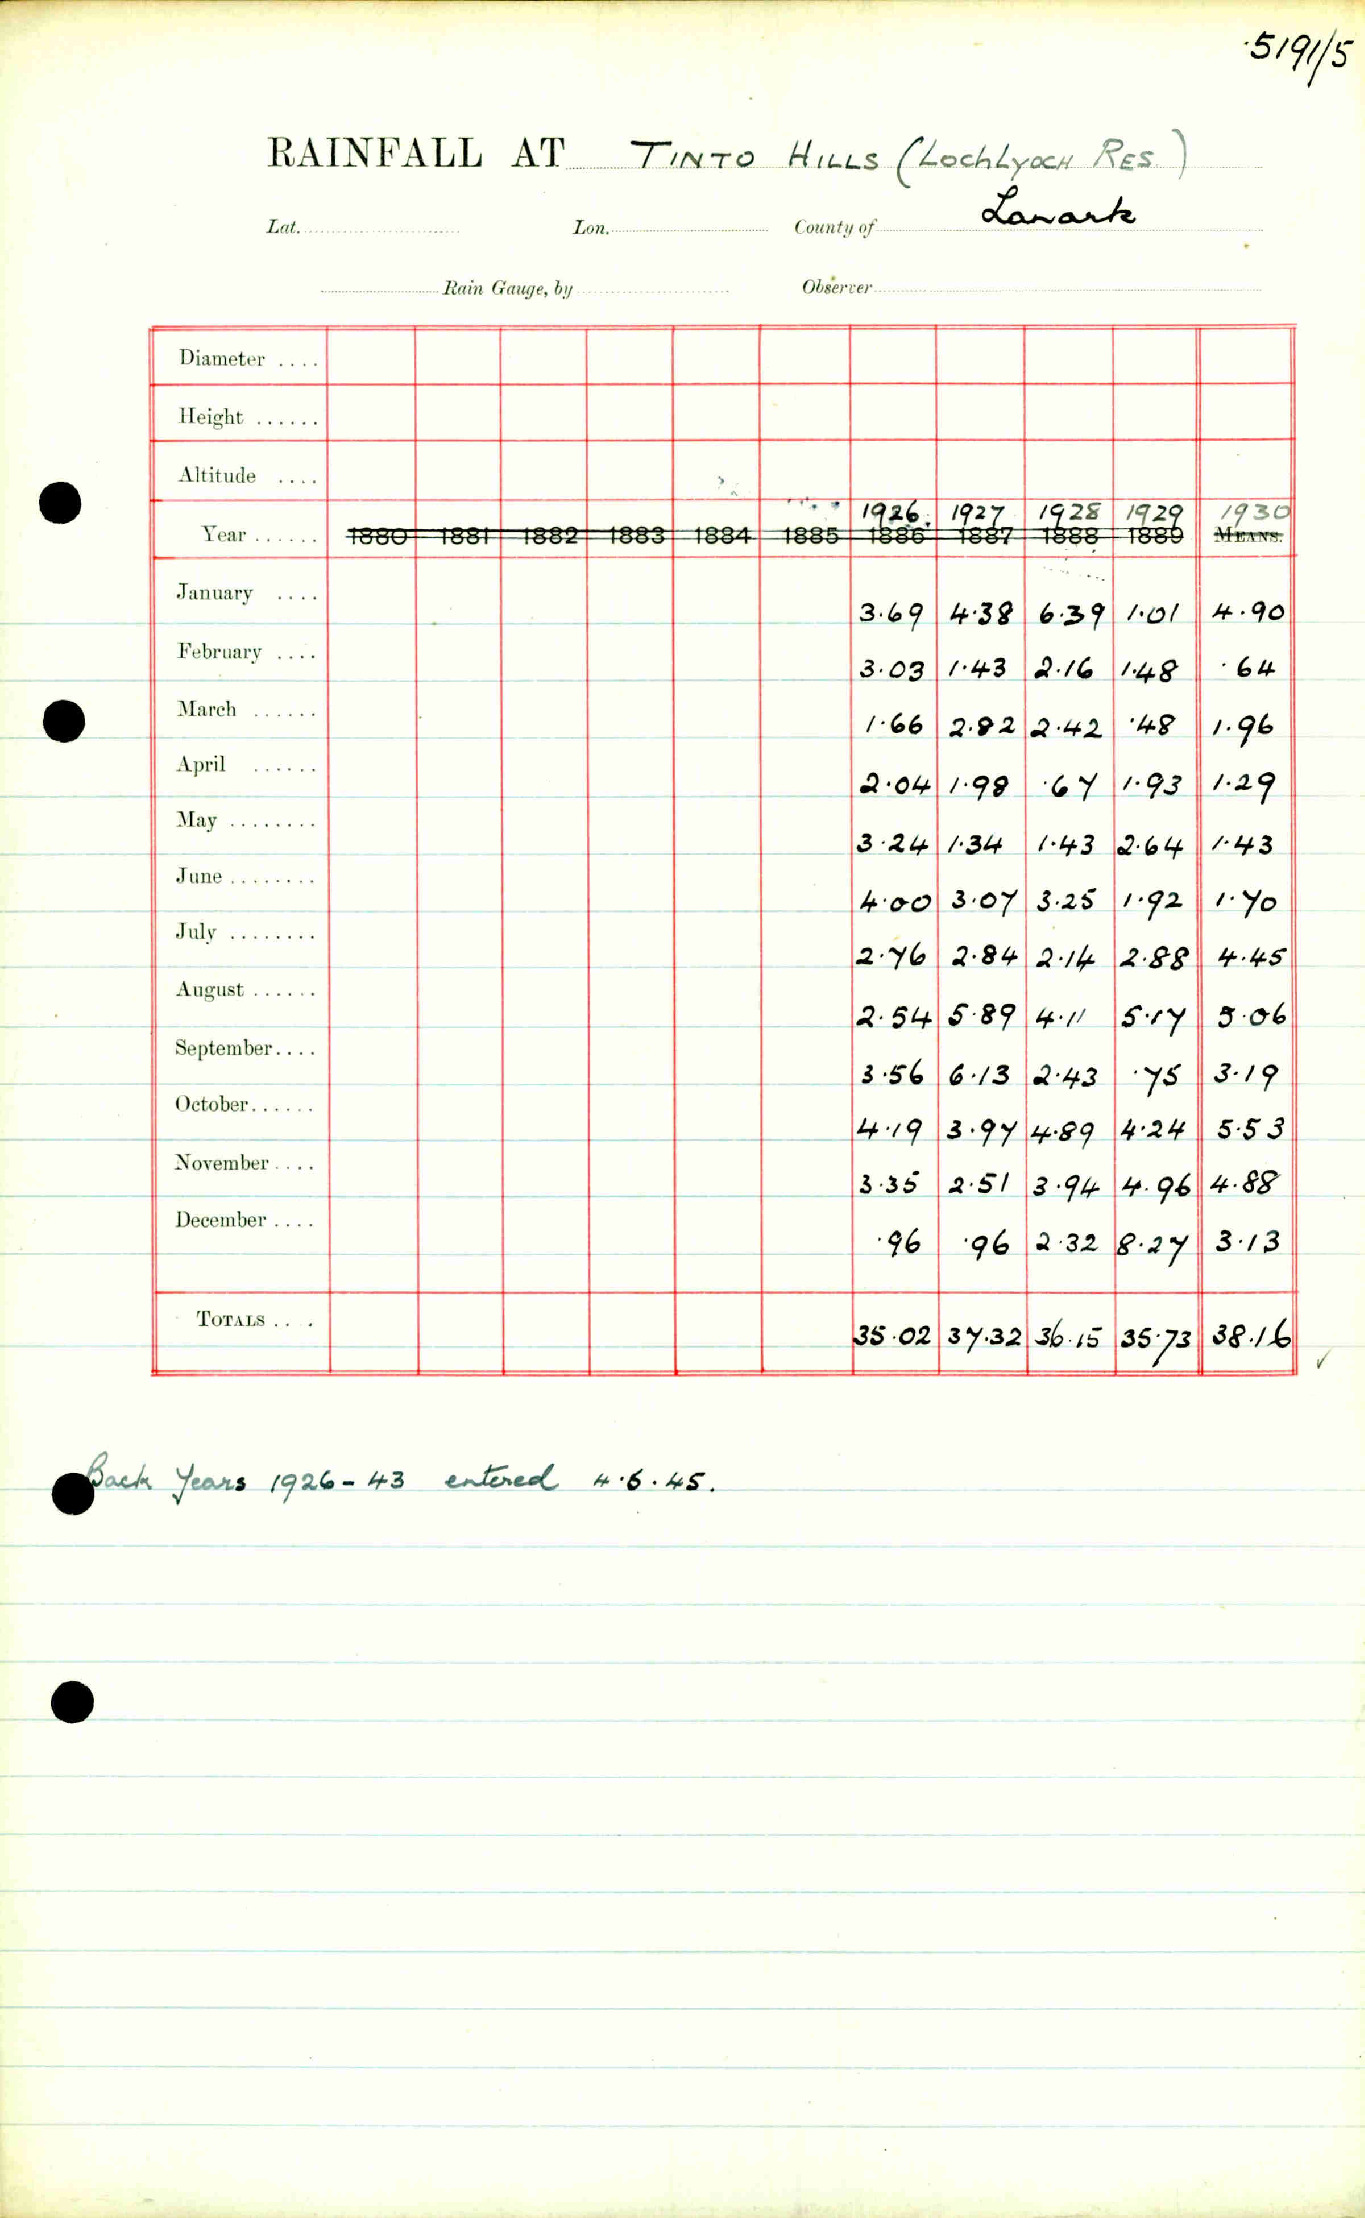 5191/5
RAINFALL AT TINTO HILLS (LochLyoch RES.)
Lat. Lon. County of Lanark
Rain Gauge, by Observer
Diameter ....
Height ......
Altitude ....
1926 1927 1928 1929 1930
Year ...... 1880 1881 1882 1883 1884 1885 1886 1887 1888 1889 MEANS.
January .... 3·69 4·38 6·39 1·01 4·90
February .... 3·03 1·43 2·16 1·48 ·64
March ...... 1·66 2·82 2·42 ·48 1·96
April ...... 2·04 1·98 ·67 1·93 1·29
May ........ 3·24 1·34 1·43 2·64 1·43
June ........ 4·00 3·07 3·25 1·92 1·70
July ........ 2·76 2·84 2·14 2·88 4·45
August ...... 2·54 5·89 4·11 5·17 5·06
September .... 3·56 6·13 2·43 ·75 3·19
October ...... 4·19 3·97 4·89 4·24 5·53
November .... 3·35 2·51 3·94 4·96 4·88
December .... ·96 ·96 2·32 8·27 3·13
TOTALS .... 35·02 37·32 36·15 35·73 38·16 ✓
Back Years 1926-43 entered 4·6·45.